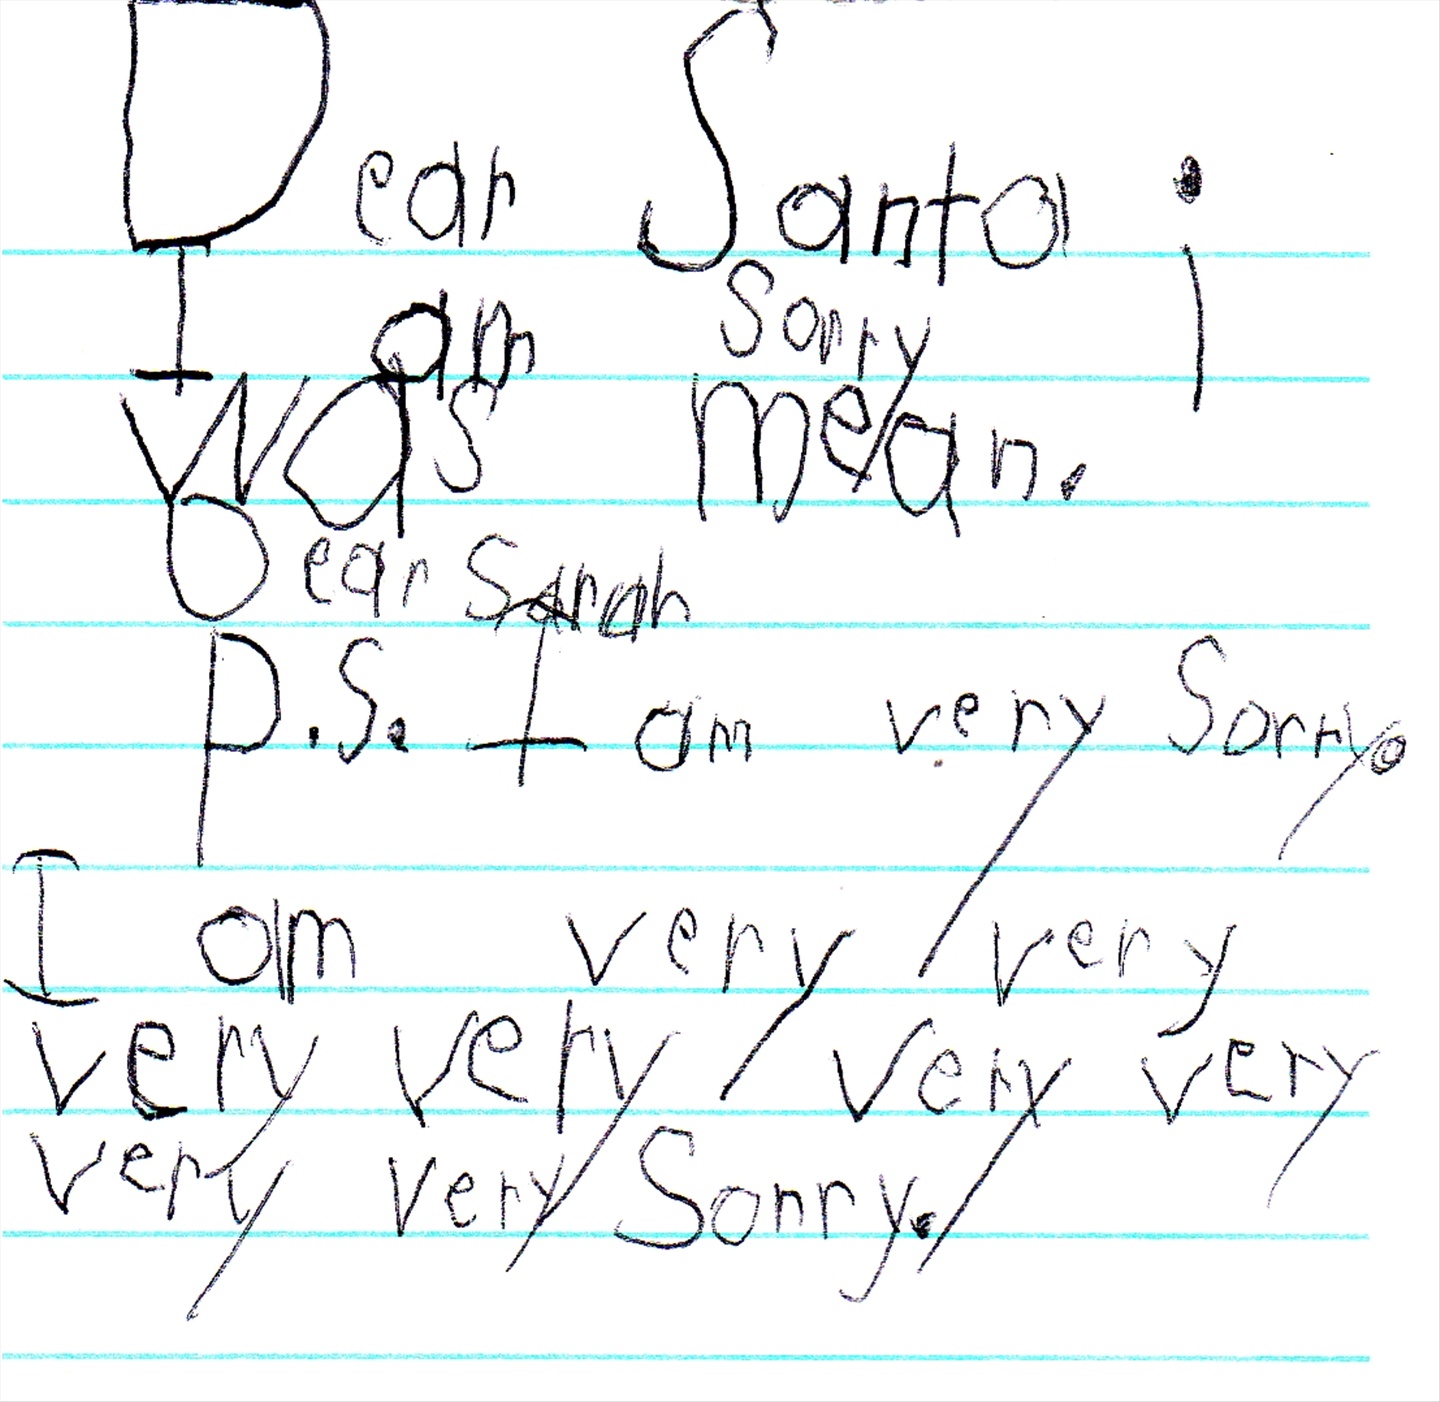 Dear Santa ;
I am Sorry
Was mean.
Dear Sarah
P.S. I am very Sorry.
I am very very
very very very very
very very Sorry.